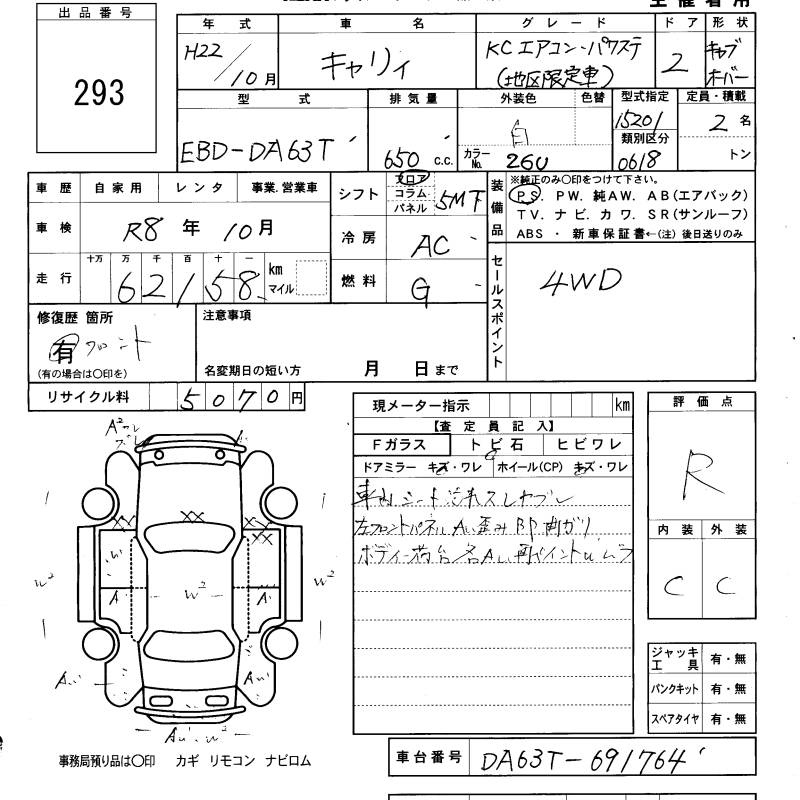 出品番号
293
年式 車名 グレード ドア 形状
H22/10月 キャリィ KCエアコン・パワステ (地区限定車) 2 キャブオーバー
型式 排気量 外装色 色替 型式指定 定員・積載
EBD-DA63T 650 c.c. 白 カラーNo. 26U 15201 2名
類別区分
0618 トン
車歴 自家用 レンタ 事業.営業車
シフト フロア コラム パネル 5MT
装備品 ※純正のみ○印をつけて下さい。
PS. PW. 純AW. AB(エアバック)
TV. ナビ. カワ. SR(サンルーフ)
ABS ・ 新車保証書←(注) 後日送りのみ
車検 R8年10月
冷房 AC
走行 十万 万 千 百 十 一
62158 km マイル
燃料 G
セールスポイント 4WD
修復歴 箇所
有 フロント
(有の場合は○印を)
注意事項
名変期日の短い方 月 日まで
リサイクル料 5070円
現メーター指示 km
【査定員記入】
Fガラス トビ石 ヒビワレ
ドアミラー キズ・ワレ ホイール(CP) キズ・ワレ
車内シート汚れスレヤブレ
左フロントパネルAい歪みBP曲ガリ
ボディー荷台/各Aい再ペイントいムラ
評価点
R
内装 外装
C C
ジャッキ 工具 有・無
パンクキット 有・無
スペアタイヤ 有・無
車台番号 DA63T-691764
事務局預り品は○印 カギ リモコン ナビロム
A
XX XX XX
W² W² W²
A A